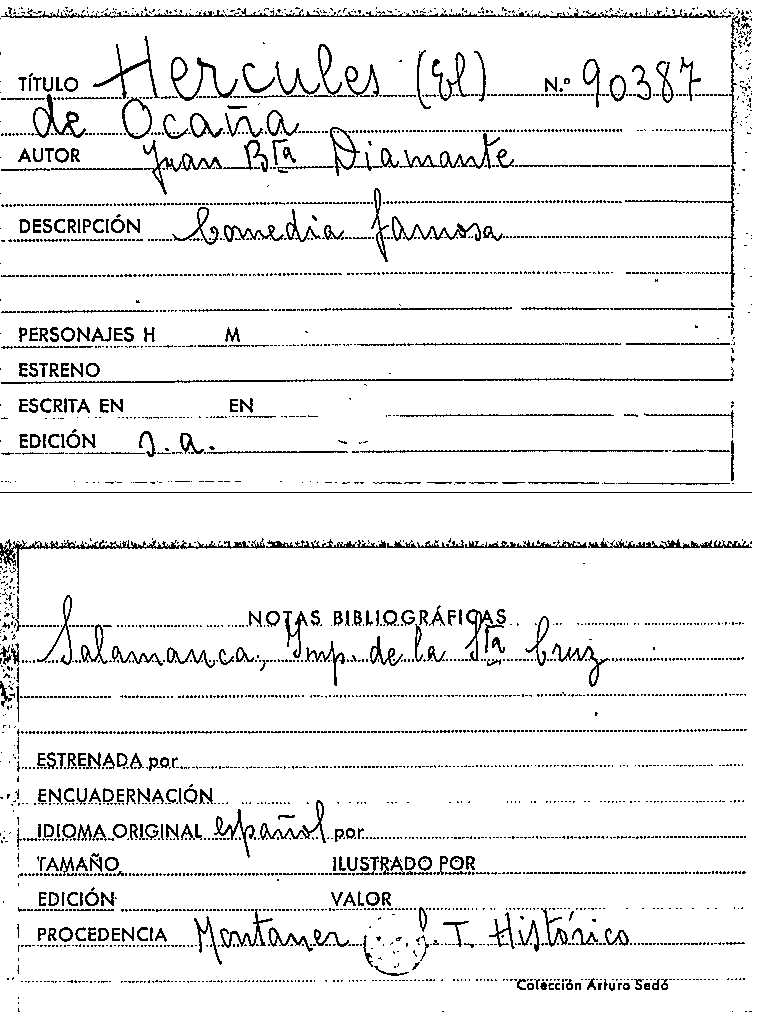 TÍTULO Hercules (El) N.º 90387
de Ocaña
AUTOR Juan Bta Diamante
DESCRIPCIÓN Comedia famosa
PERSONAJES H M
ESTRENO
ESCRITA EN EN
EDICIÓN s.a.
NOTAS BIBLIOGRÁFICAS
Salamanca, Imp. de la Sta Cruz
ESTRENADA por
ENCUADERNACIÓN
IDIOMA ORIGINAL español por
TAMAÑO ILUSTRADO POR
EDICIÓN VALOR
PROCEDENCIA Montaner T. Histórico
Colección Arturo Sedó